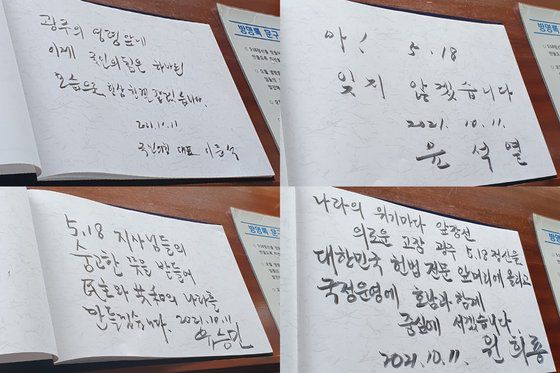 방명록 문구
광주의 영령앞에
이제 국민의힘은 하나된
모습으로 항상
2021.10.11
국민의힘 대표 이준석
방명록 문구
아! 5.18
잊지 않겠습니다
2021. 10. 11.
윤 석 열
5.18 지사님들의
숭고한 뜻을 받들어
民主와 共和의 나라를
만들겠습니다. 2021.10.11
유승민
나라의 위기마다 앞장선
의로운 고장 광주 5.18정신을
대한민국 헌법 전문 앞머리에 올리고
국정운영에 호남과 함께
중심에 서겠습니다
2021.10.11. 원희룡